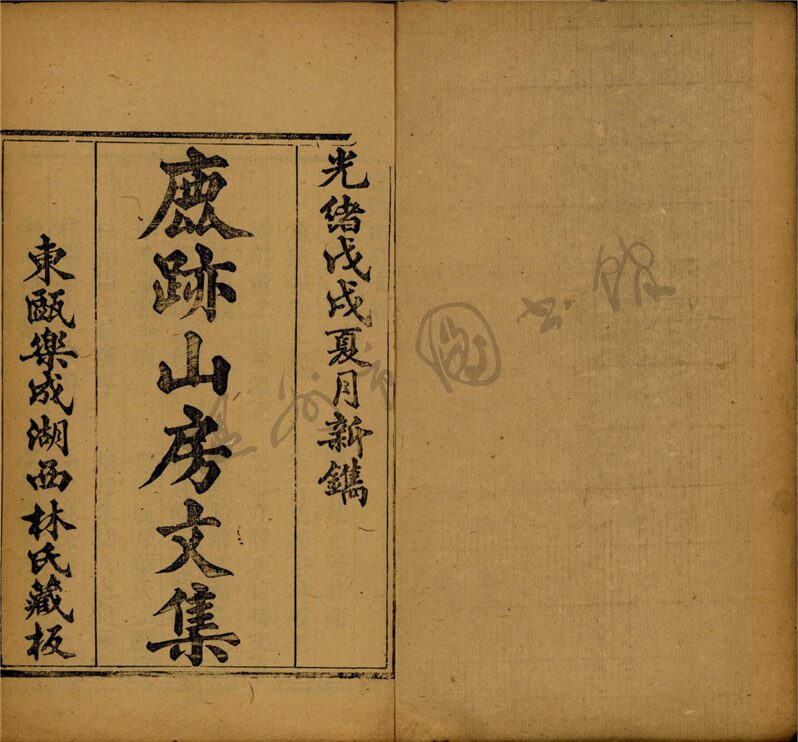 光绪戊戌夏月新鐫
鹿跡山房文集
東甌樂成湖西林氏藏板